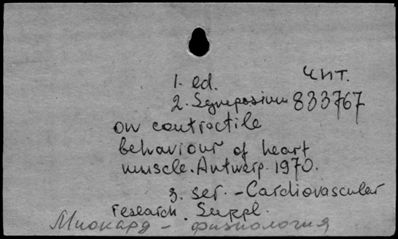 1. ed. ЧИТ.
2. Symposium 833767
on contractile
behaviour of heart
muscle. Antwerp. 1970.
3. ser. - Cardiovascular
research. Suppl.
Миокард - физиология